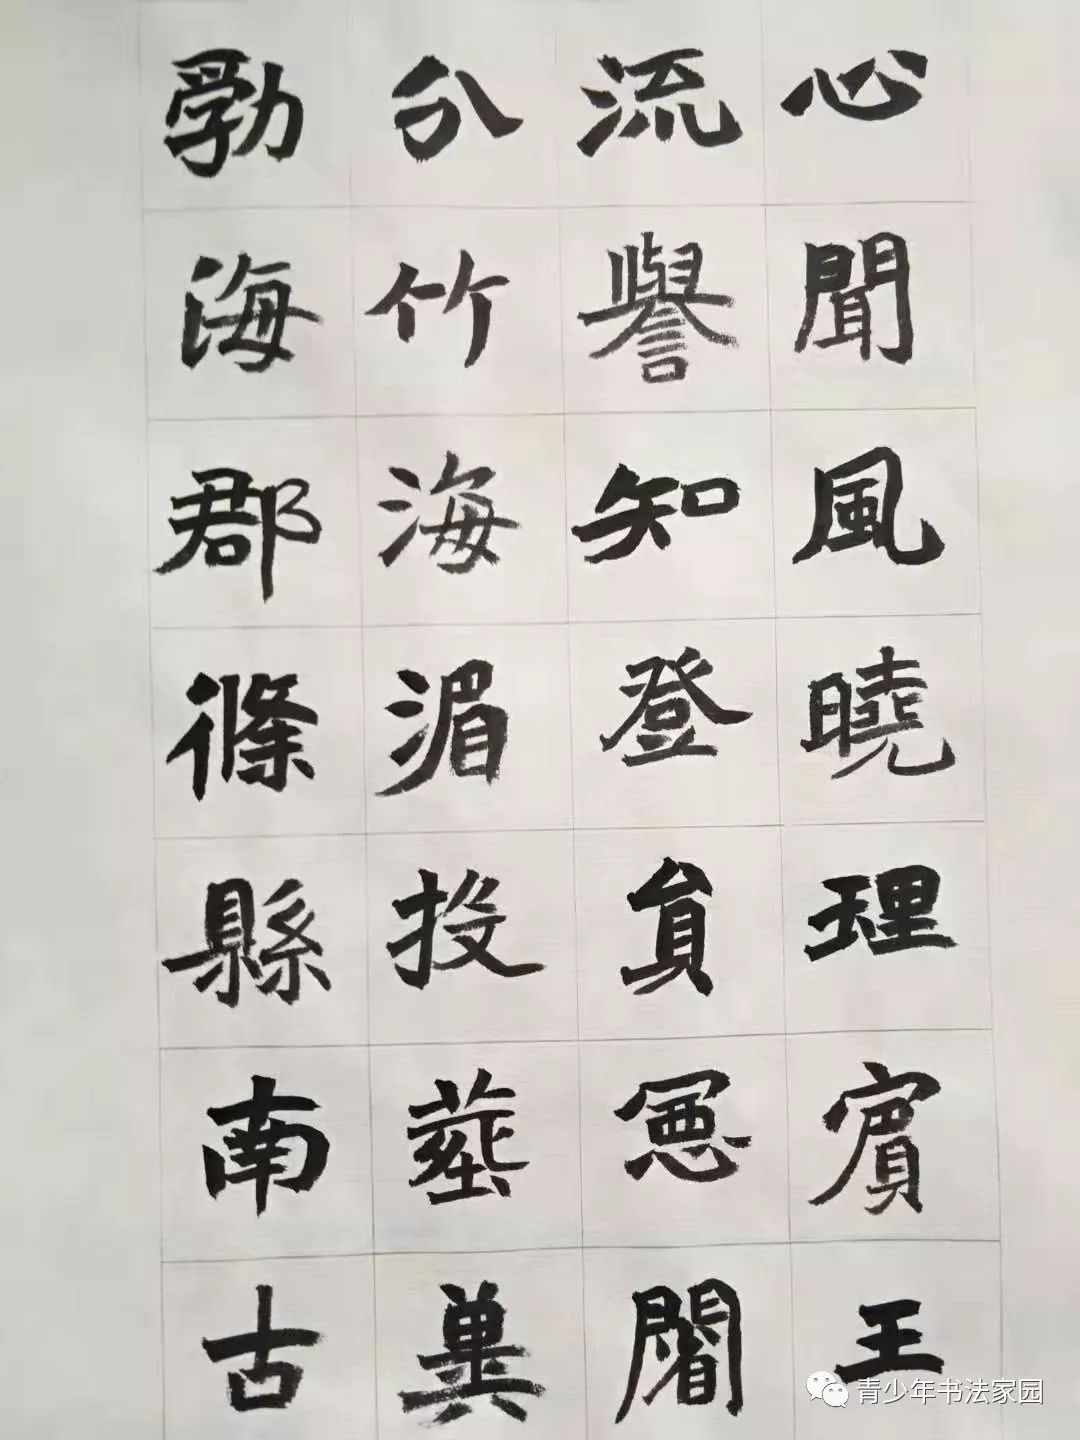 心聞風曉理賓王
流譽知登員
分竹海湄投
勃海郡條縣南古
青少年书法家园